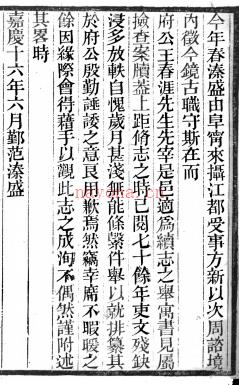 今年春溱盛由阜甯來攝江都受事方新以次周諮境
内徵今鏡古職守斯在而
府公王春涯先生先宰是邑適爲續志之舉寓書見屬
撿查案牘葢上距脩志之時已閱七十餘年吏文殘缺
浸多放軼自愧歲月甚淺無能條縈件舉以就排纂其
於府公殷勤諈諉之意良用歉焉然竊幸牗不暇暖之
餘因緣際會得藉手以觀此志之成洵不偶然謹附述
其畧時
嘉慶十六年六月鄞范溱盛